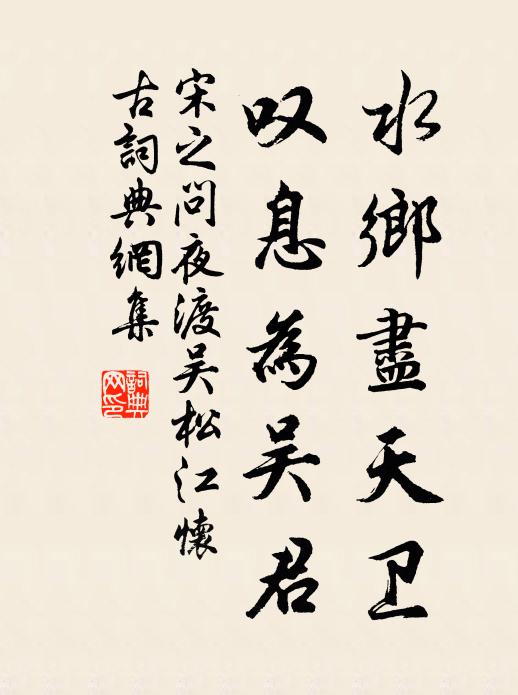 水鄉盡天卫
叹息為吴君
宋之问夜渡吴松江懷
古詞典網集
詞典
网印